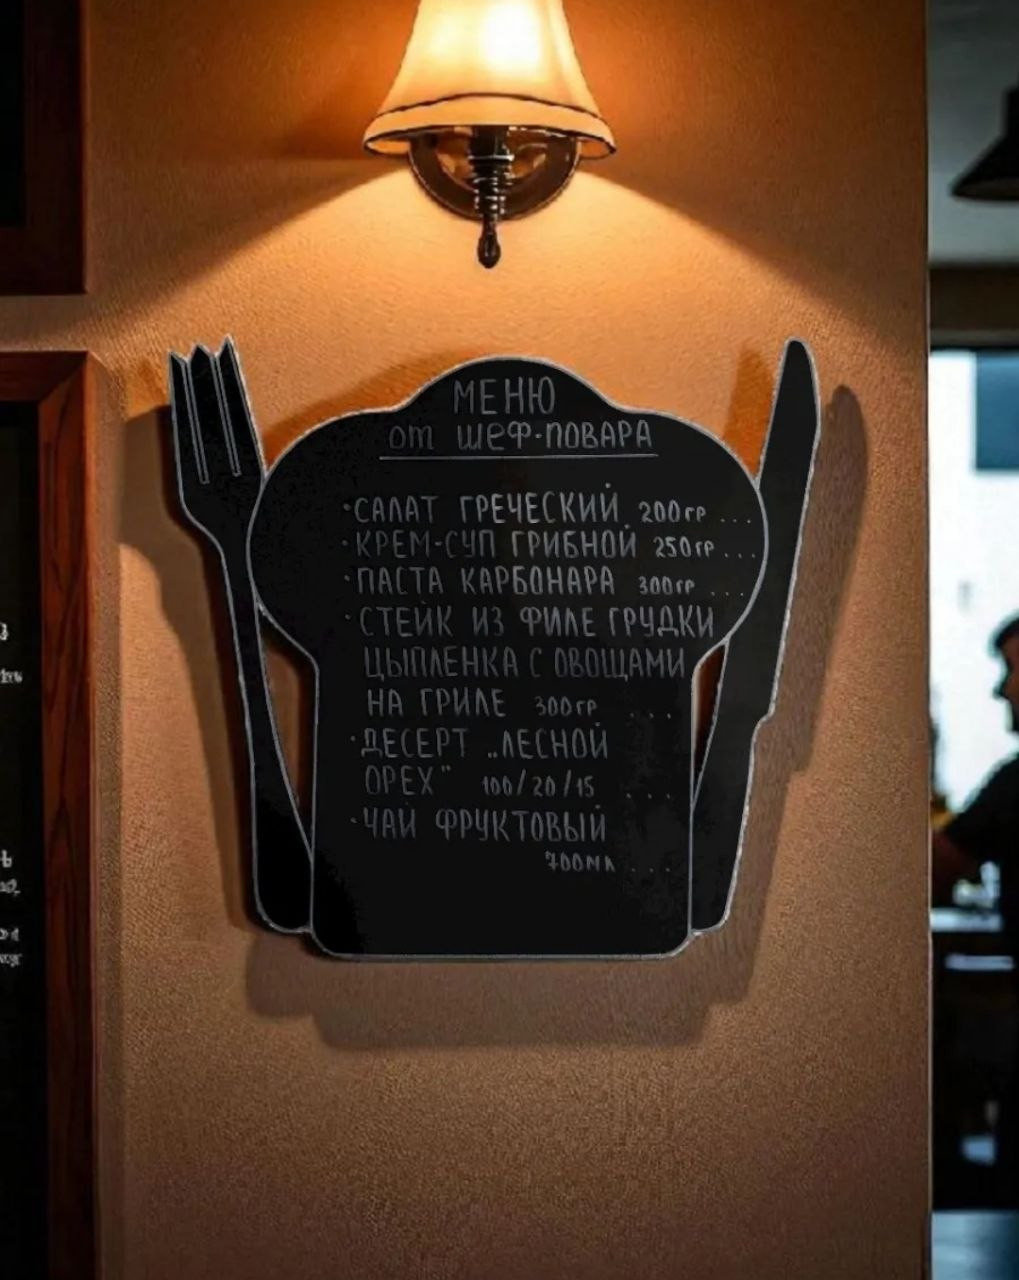 МЕНЮ
от ШЕФ-ПОВАРА
·САЛАТ ГРЕЧЕСКИЙ 200гр ...
·КРЕМ-СУП ГРИБНОЙ 250гр ...
·ПАСТА КАРБОНАРА 300гр ...
·СТЕЙК ИЗ ФИЛЕ ГРУДКИ
ЦЫПЛЕНКА С ОВОЩАМИ
НА ГРИЛЕ 300гр ...
·ДЕСЕРТ „ЛЕСНОЙ
ОРЕХ" 100/20/15 ...
·ЧАЙ ФРУКТОВЫЙ
700мл ...